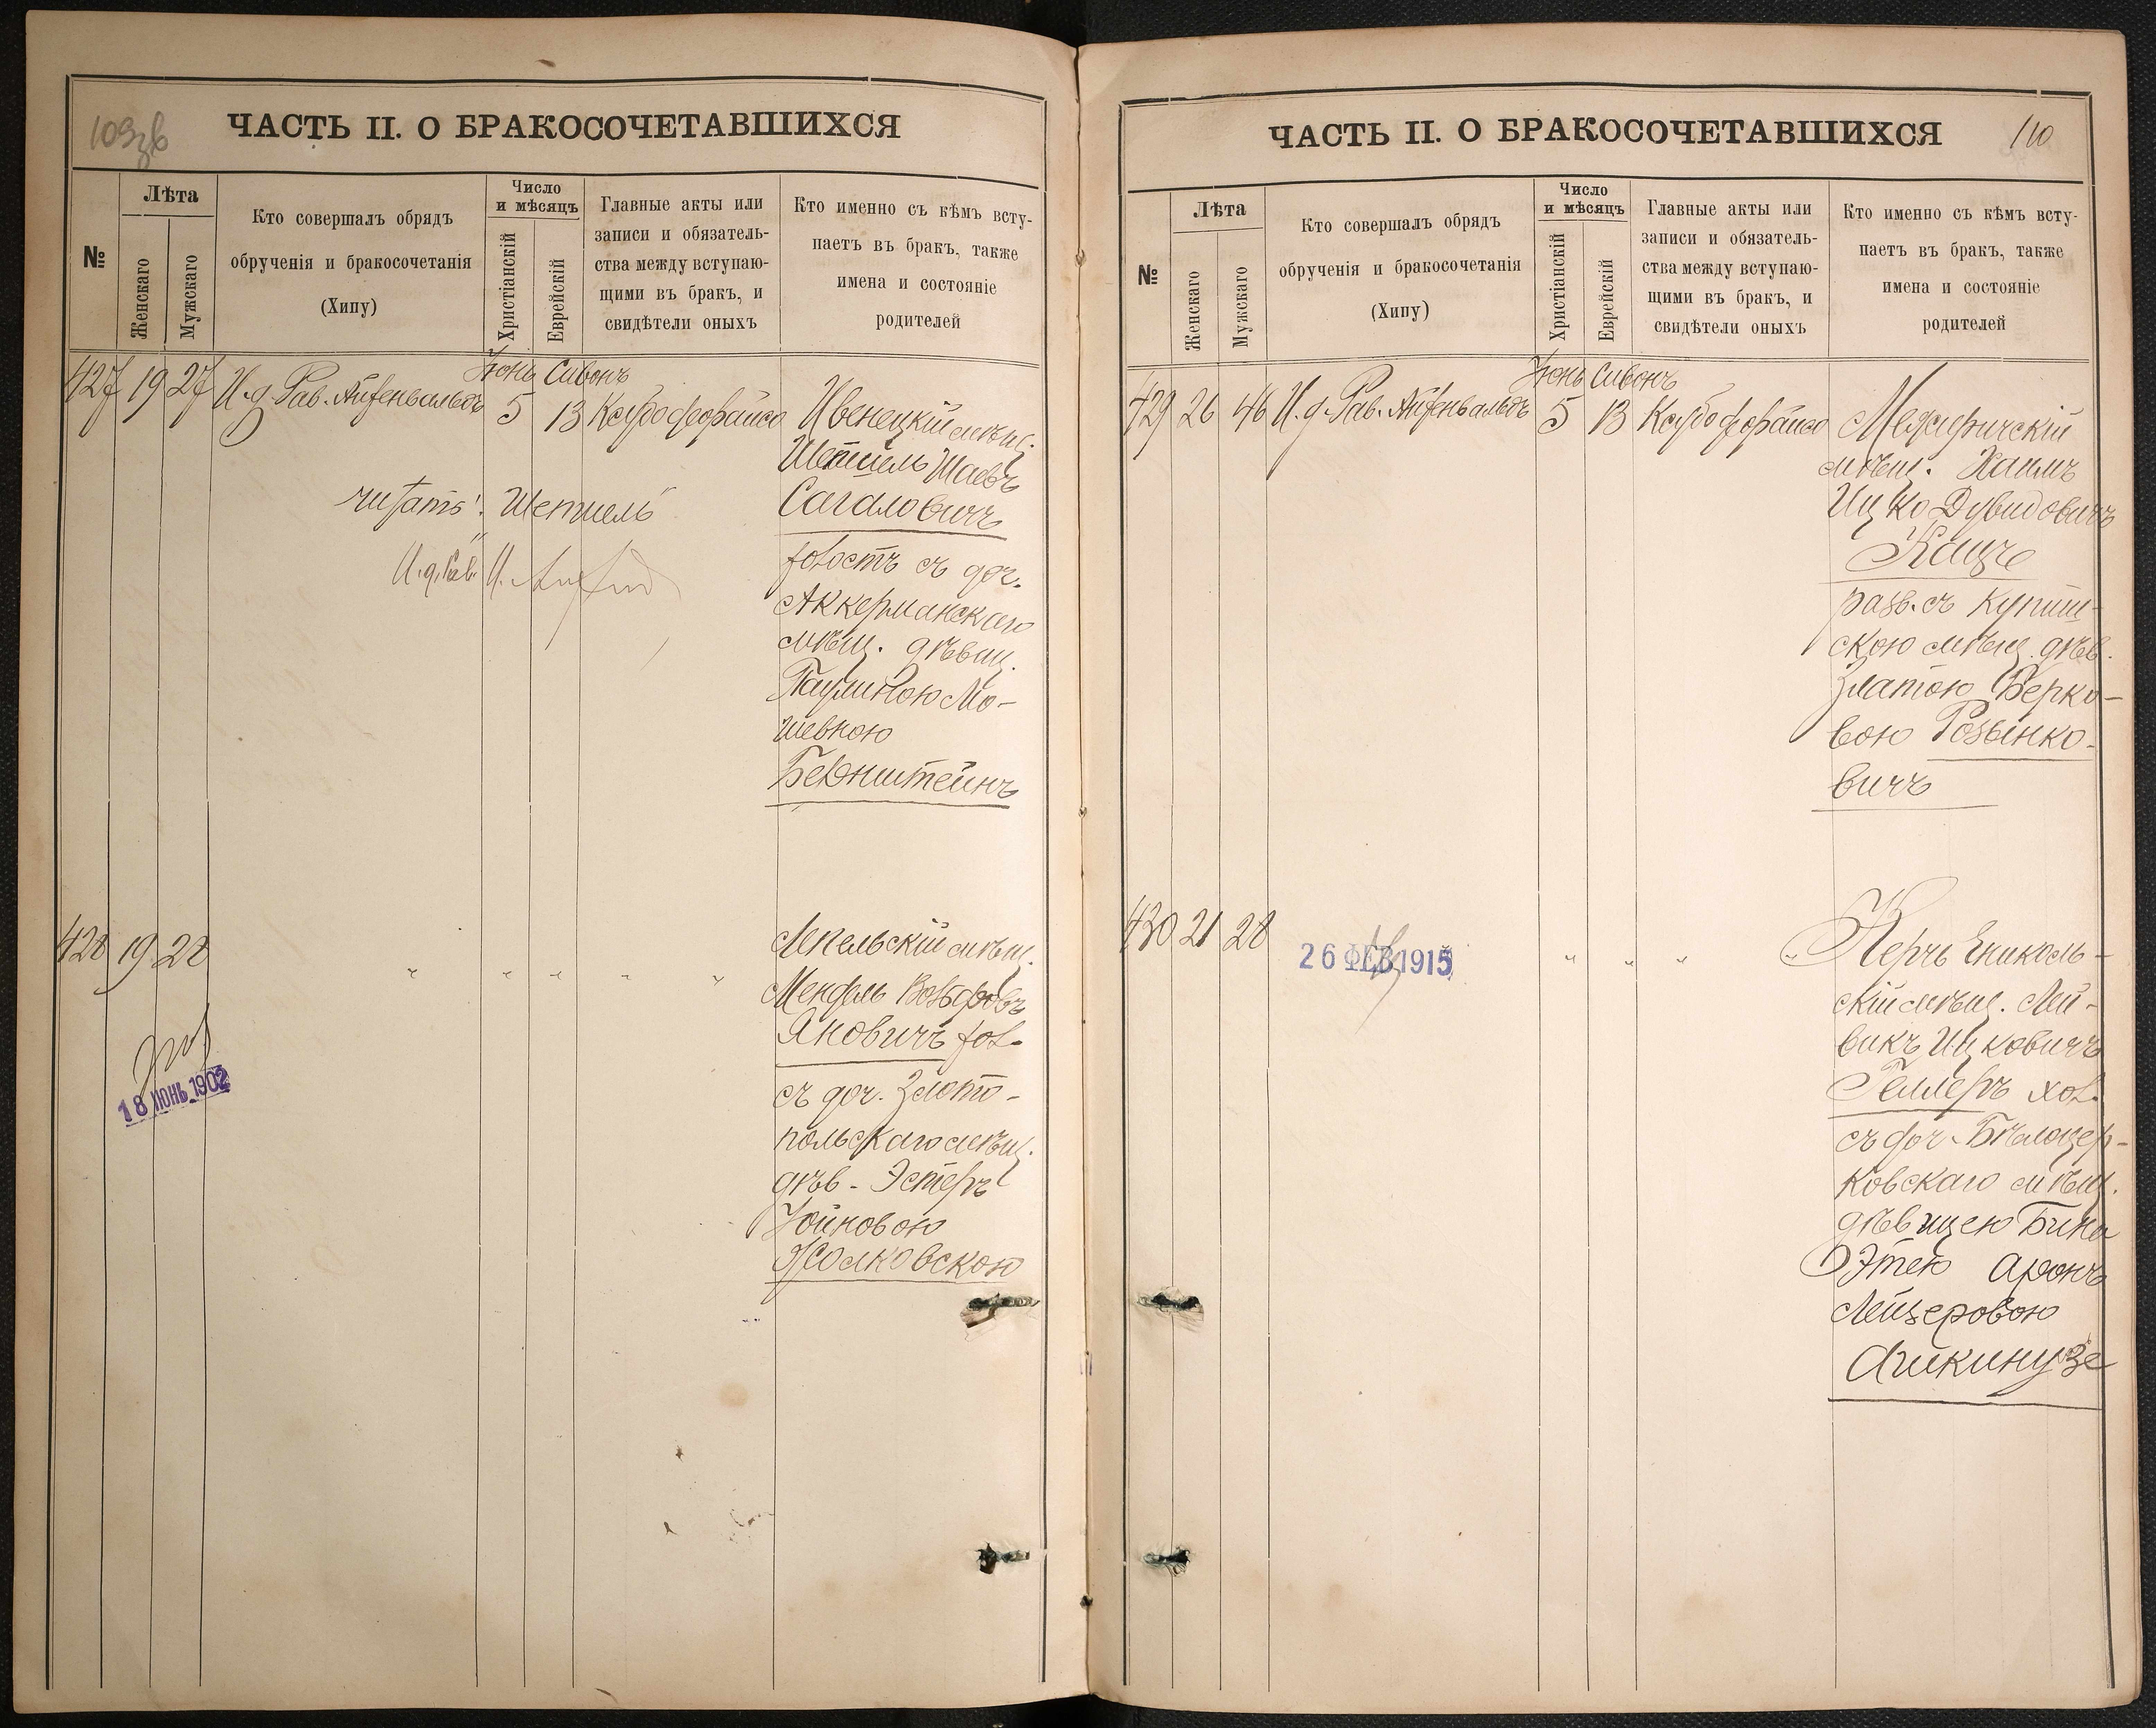 109зв
ЧАСТЬ II. О БРАКОСОЧЕТАВШИХСЯ
№
Лѣта
Женскаго
Мужскаго
Кто совершалъ обрядъ
обрученія и бракосочетанія
(Хипу)
Число
и мѣсяцъ
Христіанскій
Еврейскій
Главные акты или
записи и обязатель-
ства между вступаю-
щими въ бракъ, и
свидѣтели оныхъ
Кто именно съ кѣмъ всту-
паетъ въ бракъ, также
имена и состояніе
родителей
Іюнь Сивонъ
427 19 27 И.д. Рав. Айзенвальдъ 5 13
Ивенецкій мѣщ.
Шепшель Шаевъ
Сагаловичъ
холостъ съ доч.
Аккерманскаго
мѣщ. дѣвиц.
Паулиною Мо-
шевною
Бернштейнъ
читать: "Шепшель"
И.д. Рав.
428 19 28 " " " " "
Лепельскій мѣщ.
Мендель Вольфовъ
Яновичъ хол.
съ доч. Злато-
польскаго мѣщ.
дѣв. Эстеръ
Іойновою
Жолковскою
18 ІЮНЬ 1902
ЧАСТЬ II. О БРАКОСОЧЕТАВШИХСЯ
110
№
Лѣта
Женскаго
Мужскаго
Кто совершалъ обрядъ
обрученія и бракосочетанія
(Хипу)
Число
и мѣсяцъ
Христіанскій
Еврейскій
Главные акты или
записи и обязатель-
ства между вступаю-
щими въ бракъ, и
свидѣтели оныхъ
Кто именно съ кѣмъ всту-
паетъ въ бракъ, также
имена и состояніе
родителей
Іюнь Сивонъ
429 26 46 И.д. Рав. Айзенвальдъ 5 13
Межиричскій
мѣщ. Хаимъ
Ицко Дувидовичъ
Кацъ
разв. съ Купиш-
скою мѣщ. дѣв.
Златою Берко-
вою Розынко-
вичъ
430 21 28 " " " "
26 ФЕВ 1915
Керчь Ениколь-
скій мѣщ. Лей-
викъ Ицковичъ
Геллеръ хол.
съ доч. Бѣлоцер-
ковскаго мѣщ.
дѣвицею Бина
Этею Аронъ
Лейзеровою
Ашкинузе